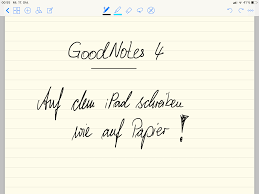 GoodNotes 4
Auf dem iPad schreiben
wie auf Papier!